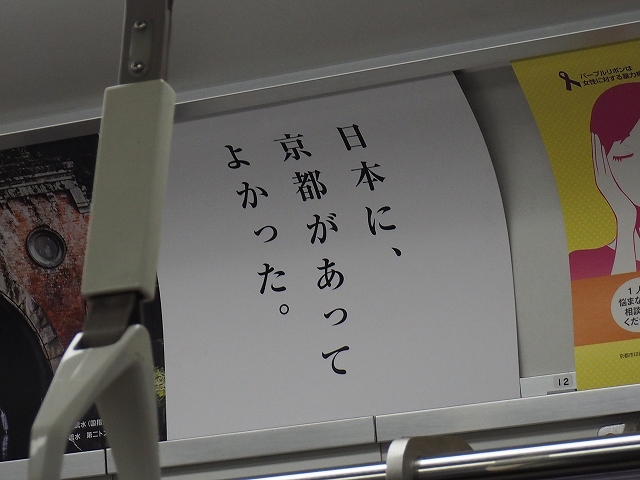 日本に、
京都があって
よかった。
パープルリボンは
女性に対する暴力
1人
悩まな
相談
くだ
12
第二トン